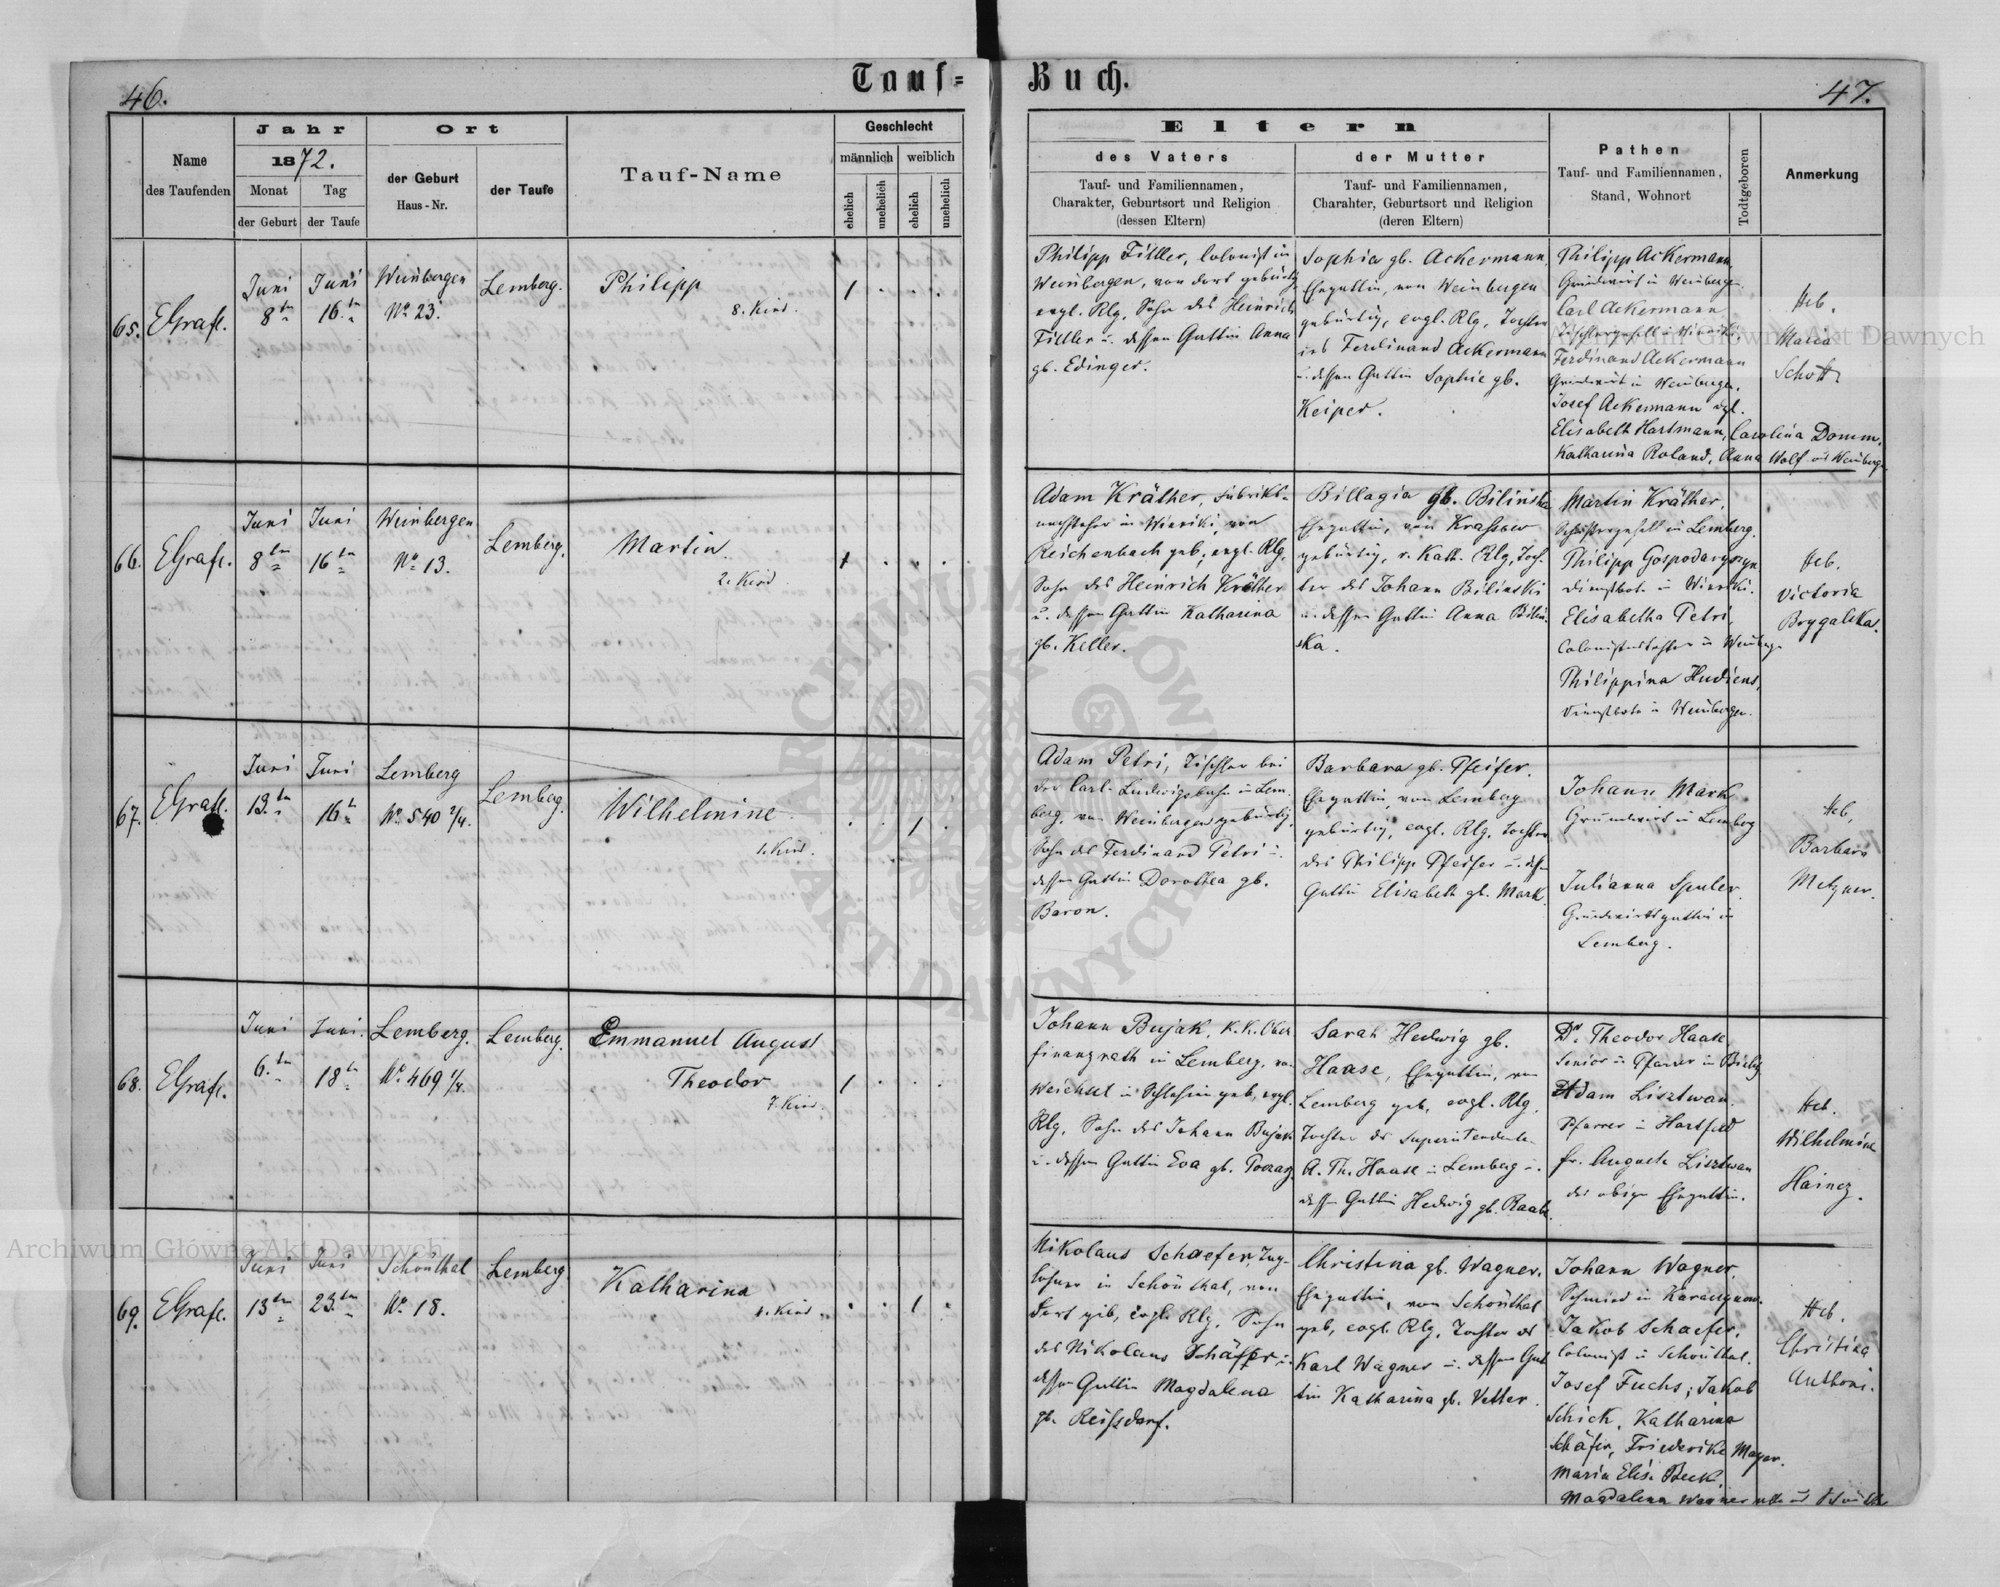 46.
Tauf=
Name
des Taufenden
Jahr
1872.
Monat
Tag
der Geburt
der Taufe
Ort
der Geburt
Haus-Nr.
der Taufe
Tauf-Name
Geschlecht
männlich
weiblich
ehelich
unehelich
ehelich
unehelich
65.
Juni
8ten
Juni
16ten
Weinbergen
No 23.
Lemberg.
Philipp
8. Kind.
66.
Juni
8ten
Juni
16ten
Weinbergen
No 13.
Lemberg.
Martin
2. Kind.
67.
Juni
13.ten
Juni
16t
Lemberg
No 540 2/4.
Lemberg.
Wilhelmine
1. Kind.
68.
Juni
6.ten
Juni.
18t
Lemberg.
No 469 1/4.
Lemberg.
Emmanuel August
Theodor
7. Kind.
69.
Juni
13ten
Juni
23.ten
Schönthal
No 18.
Lemberg
Katharina
4. Kind.
Buch.
47.
Eltern
des Vaters
Tauf- und Familiennamen,
Charakter, Geburtsort und Religion
(dessen Eltern)
der Mutter
Tauf- und Familiennamen,
Charahter, Geburtsort und Religion
(deren Eltern)
Pathen
Tauf- und Familiennamen,
Stand, Wohnort
Todtgeboren
Anmerkung
Philipp Fittler, Colonist in
Weinbergen, von dort gebürtig,
evgl. Rlg, Sohn des Heinrich
Fittler u. dessen Gattin Anna
gb. Edinger.
Sophia gb. Ackermann,
Ehegattin, von Weinbergen
gebürtig, evgl. Rlg, Tochter
des Ferdinand Ackermann
u. dessen Gattin Sophie gb.
Keiper.
Philipp Ackermann,
Grundwirt in Weinbergen.
Carl Ackermann
Ferdinand Ackermann
Grundwirt in Weinbergen.
Josef Ackermann
Elisabeth Hartmann, Carolina Domm,
Katharina Roland, Anna Wolf
Heb.
Maria
Schott
Adam Kräther, Fabriks-
aufseher in Winniki, von
Reichenbach geb, evgl. Rlg.
Sohn des Heinrich Kräther
u. dessen Gattin Katharina
gb. Keller.
gb. Bilinska
Ehegattin, von
gebürtig, r. Kath. Rlg, Toch-
ter des Johann Bilinski
u. dessen Gattin Anna Bilin-
ska.
Martin Kräther,
in Lemberg.
Philipp
Dienstbote in Winniki.
Elisabetha Petri,
Colonistentochter in
Philippina
Dienstbote in Weinbergen.
Heb.
Victoria
Adam Petri, Tischler bei
der Carl-Ludwigsbahn in Lem-
berg, von Weinbergen gebürtig,
Sohn des Ferdinand Petri u.
dessen Gattin Dorothea gb.
Baron.
Barbara gb. Pfeifer.
Ehegattin, von Lemberg
gebürtig, evgl. Rlg. Tochter
des Philipp Pfeifer u. dess.
Gattin Elisabeth gb. Mark.
Johann Mark
Grundwirt in Lemberg
Julianna Spuler
Grundwirtsgattin in
Lemberg.
Heb,
Barbara
Metzner.
Johann Bujak, K.K. Ober
finanzrath in Lemberg, von
in Schlesien geb, evgl.
Rlg, Sohn des Johann Bujak
u. dessen Gattin Eva gb.
Sarah Hedwig gb.
Haase, Ehegattin, von
Lemberg geb, evgl. Rlg,
Tochter des Superintendenten
A. Th. Haase in Lemberg u.
dessen Gattin Hedwig gb. Raabe.
Dr Theodor Haase
Senior u Pfarrer in Bielitz
Adam Lisztwan.
Pfarrer in Hartfeld
fr. Auguste Lisztwan
des obigen Ehegattin.
Heb.
Wilhelmine
Hainez.
Nikolaus Schaefer, Tag-
löhner in Schönthal, von
dort geb, evgl. Rlg, Sohn
des Nikolaus Schäfer u.
dessen Gattin Magdalena
gb. Reißdorf.
Christina gb. Wagner.
Ehegattin, von Schönthal
geb, evgl. Rlg, Tochter des
Karl Wagner u. dessen Gat
tin Katharina gb. Vetter.
Johann Wagner,
Schmied in
Jakob Schaefer,
Colonist in Schönthal.
Josef Fuchs, Jakob
Schick, Katharina
Schäfer, Friederike Mayer.
Maria Elise Beck
Magdalena Wagner
Heb.
Christina
Anthoni.
Archiwum Główne Akt Dawnych
Archiwum Główne Akt Dawnych
ARCHIWUM GŁÓWNE AKT DAWNYCH